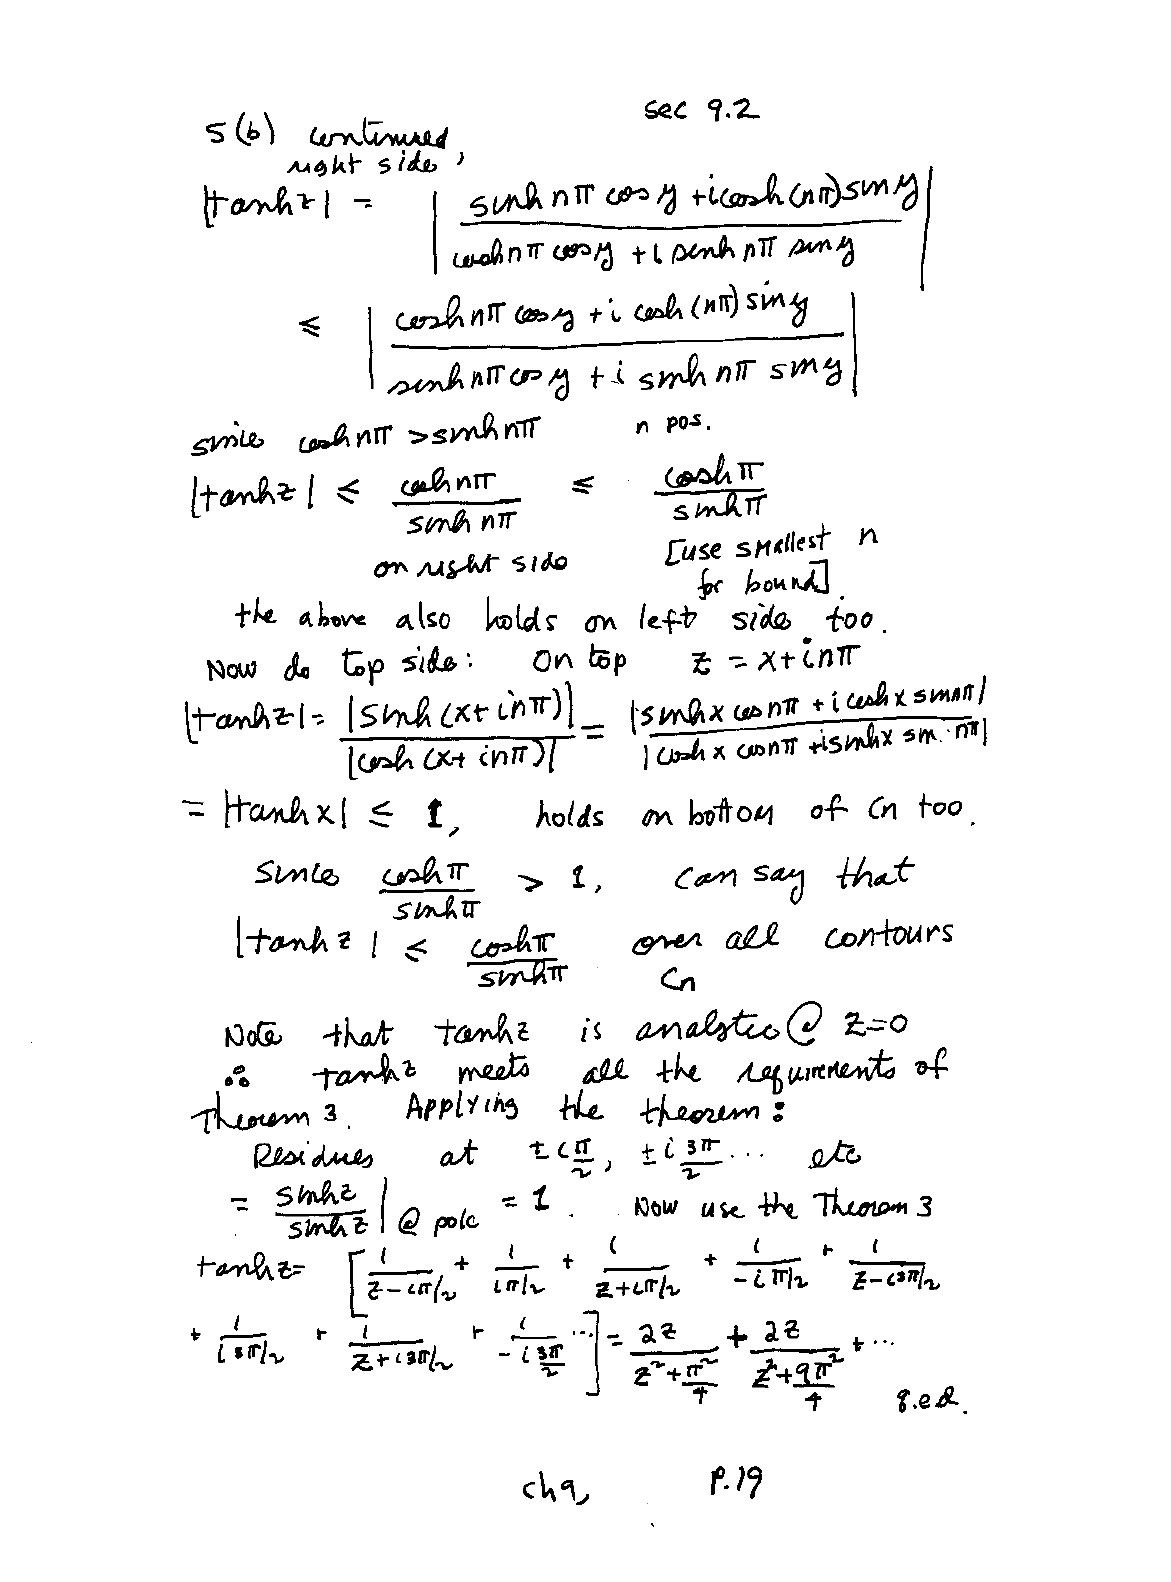 sec 9.2
5(b) continued
right side,
|tanh z| = | sinh nπ cos y + i cosh (nπ) sin y / cosh nπ cos y + i sinh nπ sin y |
≤ | cosh nπ cos y + i cosh (nπ) sin y / sinh nπ cos y + i sinh nπ sin y |
since cosh nπ > sinh nπ n pos.
|tanh z| ≤ cosh nπ / sinh nπ ≤ cosh π / sinh π
on right side [use smallest n
for bound].
the above also holds on left side too.
Now do top side: On top z = x + inπ
|tanh z| = |sinh (x + inπ)| / |cosh (x + inπ)| = |sinh x cos nπ + i cosh x sin nπ| / |cosh x cos nπ + i sinh x sin nπ|
= |tanh x| ≤ 1, holds on bottom of Cn too.
Since cosh π / sinh π > 1, can say that
|tanh z| ≤ cosh π / sinh π over all contours
Cn
Note that tanh z is analytic @ z=0
∴ tanh z meets all the requirements of
Theorem 3. Applying the theorem:
Residues at ± iπ/2, ± i 3π/2 ... etc
= sinh z / sinh z | @ pole = 1. Now use the Theorem 3
tanh z = [ 1/(z - iπ/2) + 1/(iπ/2) + 1/(z + iπ/2) + 1/(-iπ/2) + 1/(z - i3π/2)
+ 1/(i3π/2) + 1/(z + i3π/2) + 1/(-i3π/2) ... ] = 2z/(z² + π²/4) + 2z/(z² + 9π²/4) + ...
q.e.d.
ch 9, p.19